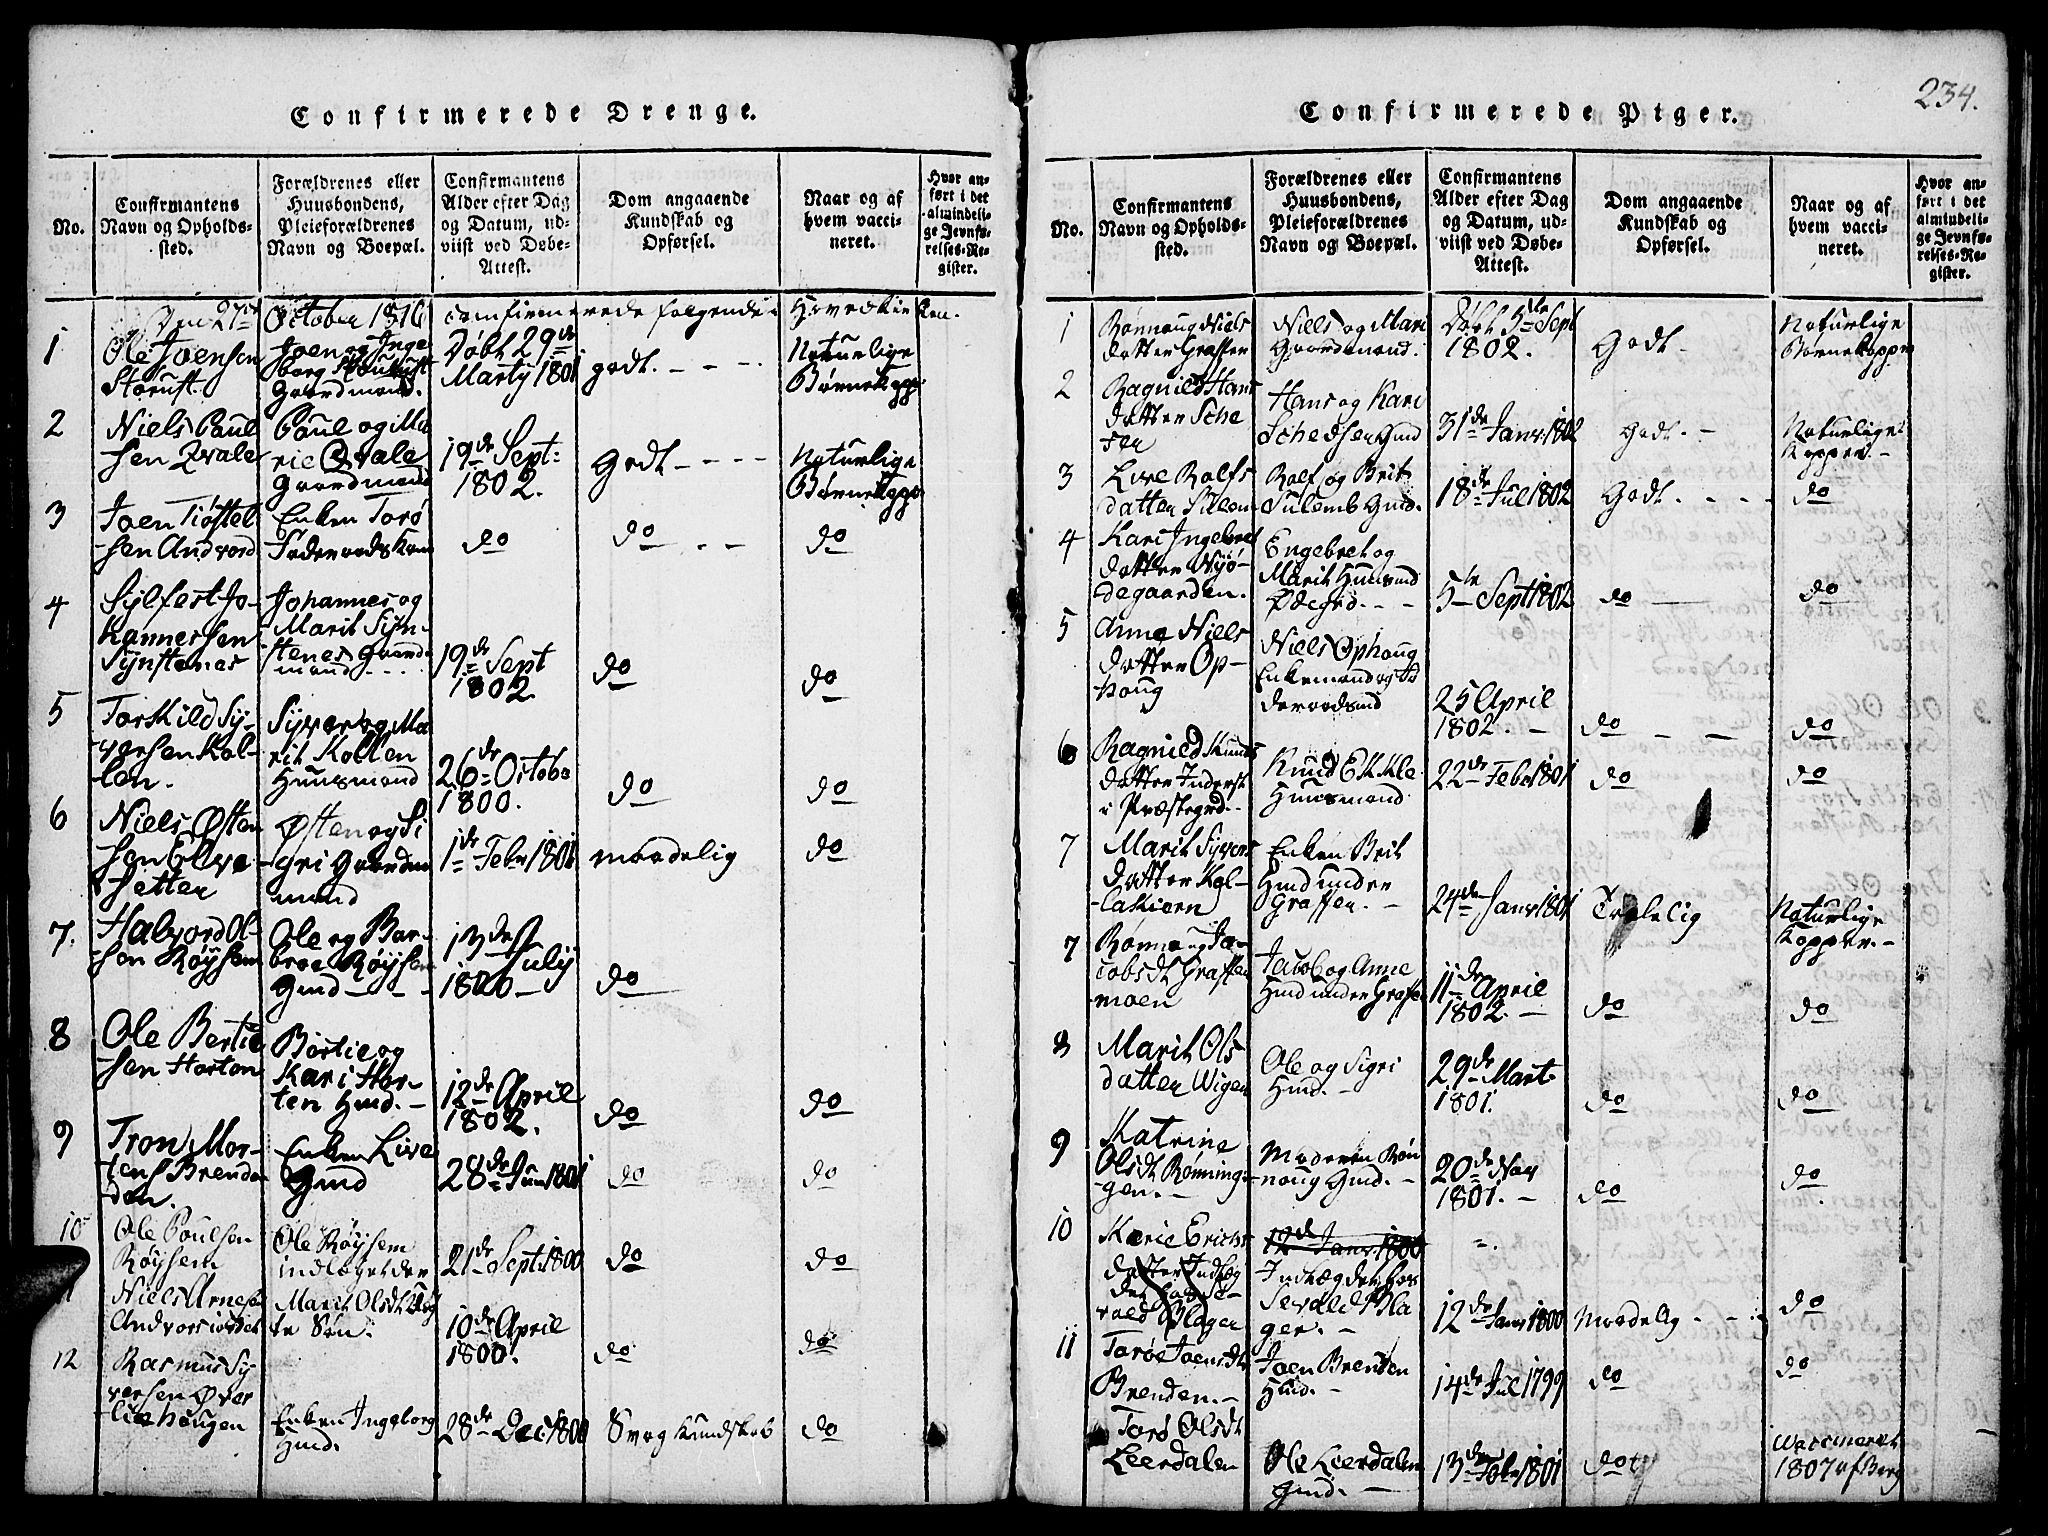 234.
Confirmerede Drenge.
No.
Confirmantens Navn og Opholds-sted.
Forældrenes eller Huusbondens, Pleieforældrenes Navn og Boepæl.
Confirmantens Alder efter Dag og Datum, ud-viist ved Døbe-Attest.
Dom angaaende Kundskab og Opførsel.
Naar og af hvem vacci-neret.
Hvor an-ført i det almindeli-ge Jevnfø-relses-Re-gister.
Den 27de October 1816 confirmerede følgende i Hovedkirken.
1
Ole Joensen
Storust
Joen og Inge
borg
Gaardmænd.
Døbt 29de
Martij 1801
godt. - - -
Naturlige
Børnekopp
2
Niels Poul
sen Qvale
Poul og Ma
rie Qvale
Gaardmænd
19de Sept:
1802.
Godt - - - -
Naturlige
Børnekopp
3
Joen Tiøstel
sen Andvord
Enken Torø
Føderaadskone
do
do - -
do
4
Sylfest Jo-
hannessen
Synstenes
Johannes og
Marit Syn-
stenes Gaard-
mænd - - -
19de Sept
1802.
do
do
5
Torkild Sy-
versen Kol-
len.
Syver og Ma
rit Kollen
Huusmænd
26de Octobr
1800.
do
do
6
Niels Østen
sen Elve-
setter
Østen og Si
gri Gaardm
mænd
1de Febr 1801
maadelig
do
7.
Halvord Ol-
sen Røysem
Ole og Bar-
broe Røysem
Hmd - - -
13de
July
1800 -
do
8
Ole Bertil
sen Horten
Bertil og
Kari Hor-
ten Hmd. -
12de April
1802.
do
do
9
Tron Mor-
tens Brenden
den.
Enken Live
Hmd
28de Jun 1801
do
do
10
Ole Poulsen
Røysem
Ole Røysem
indlagt der
21de Sept. 1800
do
do
11
Niels Arnesen
Andvorsiordet
Marit Olsdt
te Søn.
10de April
1800.
do
do
12
Rasmus Sy
versen Øver
liehougen
Enken Ingeborg
Hmd.
28de Dec. 1800
Svag Kundskab
do
Confirmerede Piger.
No.
Confirmantens Navn og Opholds-sted.
Forældrenes eller Huusbondens, Pleieforældrenes Navn og Boepæl.
Confirmantens Alder efter Dag og Datum, ud-viist ved Døbe-Attest.
Dom angaaende Kundskab og Opførsel.
Naar og af hvem vacci-neret.
Hvor an-ført i det almindeli-ge Jevnfø-relses-Re-gister.
1
Rønnoug Niels
datter Graffer
Niels og Mari
Gaardmænd.
Døbt 5te Sept
1802.
Godt -
Naturlige
Børnekopper
2
Ragnild Hans
datter Sche
Hans og Kari
31de Janr. 1802
Godt. -
Naturlige
Kopper. -
3
Live Rolfs
datter Sulem
Rolf og Brit
Sulemb Hmd.
18de Jul 1802
Godt. - - -
do
4
Kari Ingebret
datter Nyø-
degaarden.
Engebret og
Marit Huusmd
Ødegrd. - -
5te Sept 1802
do -
do
5
Anne Niels
datter Op-
houg
Niels Ophoug
Enkemand og Fø
deraadsmd
25 April
1802. -
do - -
do
6
Ragnild Knuds
datter Inderst
i Præstegrd. -
Knud Ekkle
Huusmand
22de Febr 1801
do
do
7
Marit Syvers
datter Kol-
lakiern
Enken Brit
Hmd under
Graffer. -
24de Janr 1801
Taalelig
Naturlige
Kopper. -
7
Rønnoug Ja-
cobsdt Graffer
moen
Jacob og Anne
Hmd under Graffer
11de April
1802. -
do
do
8
Marit Ols
datter Wigen
Ole og Sigri
Hmd. -
29de Mart.
1801.
do
do
9
Katrine
Olsdt Rønnin-
gen. -
Moderen Røn
noug Hmd. -
20de Nov
1801. -
do
do
10
Marie Erichs
datter Indlæg
det hos Se-
vald Blager
12de Janr. 1800
Indlægdet hos
Sevald Bla
ger. -
12de Janr 1800
Maadelig - -
do
11
Torøe Joensdt
Brenden. -
Joen Brenden
Hmd. -
14de Jul 1799
do
do
Torø Olsdt
Leerdalen
Ole Leerdalen
Hmd. -
13de Febr 1801
do
Vaccineret
1807 af Berg